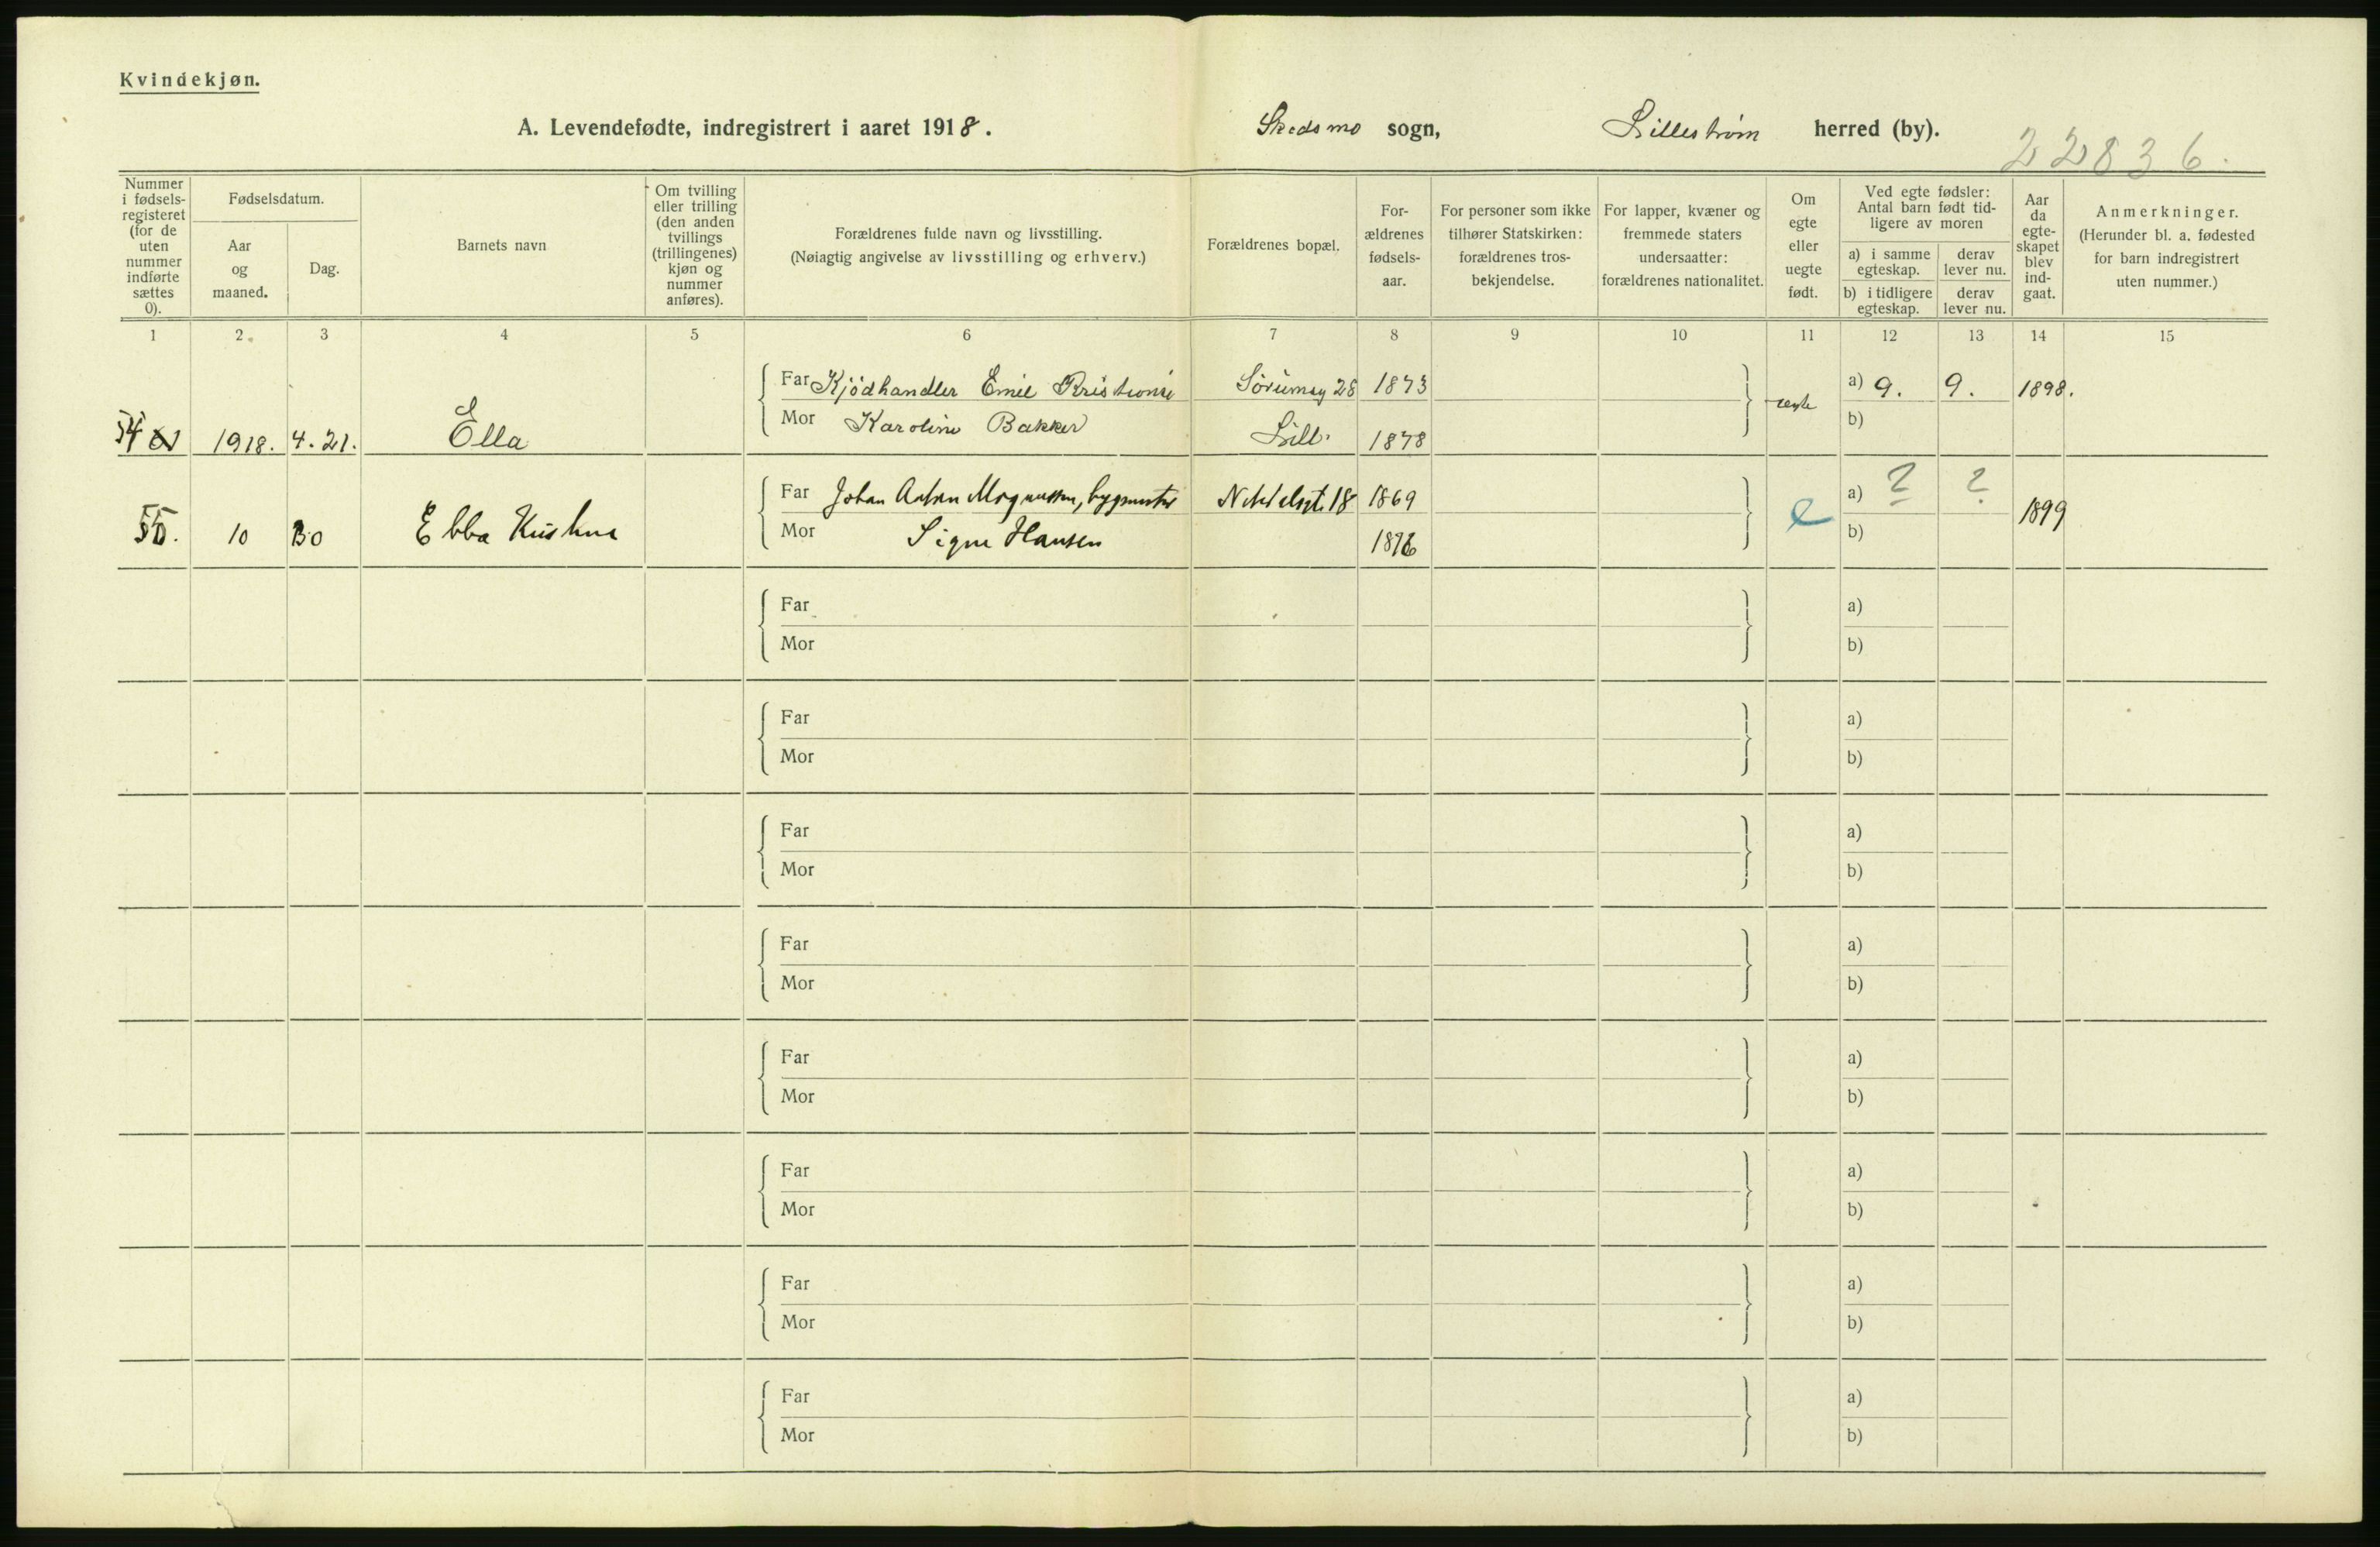 Kvindekjøn.
A. Levendefødte, indregistrert i aaret 1918. Skedsmo sogn, Lillestrøm herred (by).
22836.
Nummer i fødsels-registeret (for de uten nummer indførte sættes 0).
Fødselsdatum.
Aar og maaned.
Dag.
Barnets navn
Om tvilling eller trilling (den anden tvillings (trillingenes) kjøn og nummer anføres).
Forældrenes fulde navn og livsstilling.
(Nøiagtig angivelse av livsstilling og erhverv.)
Forældrenes bopæl.
For-ældrenes fødsels-aar.
For personer som ikke tilhører Statskirken: forældrenes tros-bekjendelse.
For lapper, kvæner og fremmede staters undersaatter: forældrenes nationalitet.
Om egte eller uegte født.
Ved egte fødsler: Antal barn født tid-ligere av moren
a) i samme egteskap.
derav lever nu.
b) i tidligere egteskap.
derav lever nu.
Aar da egte-skapet blev ind-gaat.
Anmerkninger.
(Herunder bl. a. fødested for barn indregistrert uten nummer.)
1 2 3 4 5 6 7 8 9 10 11 12 13 14 15
Far Kjödhandler Emil 28 1873 a) 9. 9. 1898.
54 1918. 4. 21. Ella Mor Karoline Bakker Lill. 1878 egte b)
Far Johan Anton Magnussen, bygmester 18 1869 a) ? ? 1899
55. 10 30 Ebba Mor Signe Hansen 1876 e b)
Far a)
Mor b)
Far a)
Mor b)
Far a)
Mor b)
Far a)
Mor b)
Far a)
Mor b)
Far a)
Mor b)
Far a)
Mor b)
Far a)
Mor b)